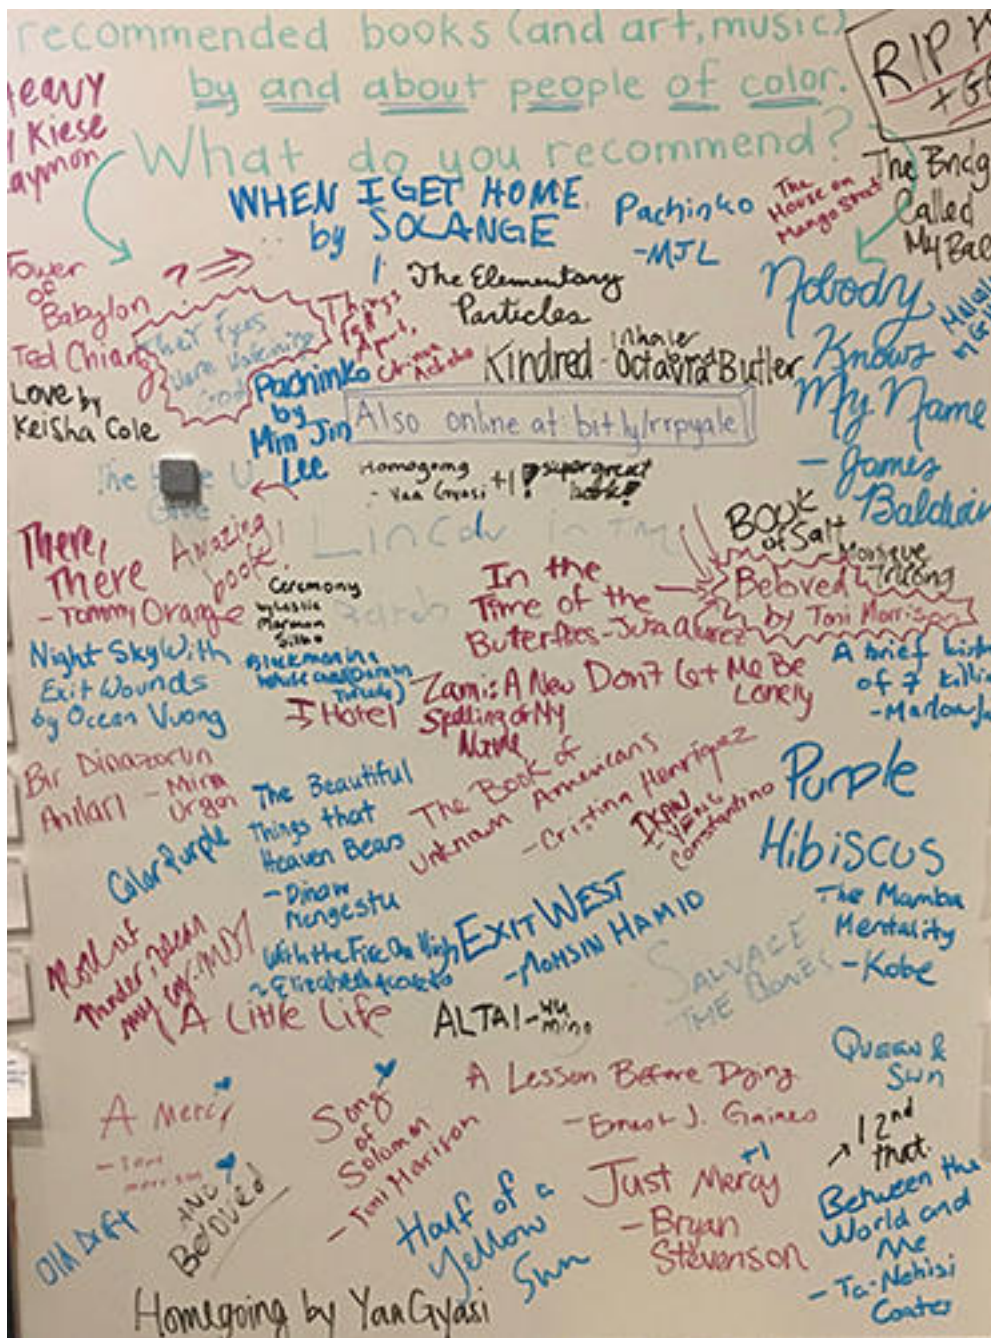 recommended books (and art, music)
by and about people of color.
What do you recommend?
RIP
Heavy
Kiese
Laymon
WHEN I GET HOME
by SOLANGE
Pachinko
- MJL
The
House on
Mango Street
The Bridge
Called
My Back
Tower
of
Babylon
Ted Chiang
?
Their Eyes
Were Watching
God
Things
Fall
Apart,
Chinua
Achebe
The Elementary
Particles
Kindred - Octavia Butler
Inhale
Nobody
Knows
My Name
- James
Baldwin
Love by
Keisha Cole
Pachinko
by
Min Jin
Lee
Also online at: bit.ly/rrpyale
The Hate U
Give
Homegoing
- Yaa Gyasi +1 ! super great
book!
There,
There
- Tommy Orange
Amazing
book.
Lincoln in the
Bardo
Ceremony
by Leslie
Marmon
Silko
In the
Time of the
Buterflies - Julia Alvarez
BOOK
of Salt
- Monique
Truong
Beloved
by Toni Morrison
Night Sky With
Exit Wounds
by Ocean Vuong
I Hotel
Zami: A New
Spelling of My
Name
Don't Let Me Be
Lonely
A brief hist
of 7 killin
- Marlon Ja
Bir Dinazorun
Anilari - Mina
Urgan
Color Purple
The Beautiful
Things that
Heaven Bears
- Dinaw
Mengestu
The Book of
Unknown Americans
- Cristina Henriquez
Purple
Hibiscus
With the Fire On High
- Elizabeth Acevedo
EXIT WEST
- MOHSIN HAMID
SALVAGE
THE BONES
The Mamba
Mentality
- Kobe
A Little Life
ALTAI - Wu
ming
QUEEN &
SLIM
A Mercy
- Toni
Morrison
AND
BELOVED
Song
of
Solomon
- Toni Morison
A Lesson Before Dying
- Ernest J. Gaines
I 2nd
that.
Old Drift
Half of a
Yellow
Sun
Just Mercy +1
- Bryan
Stevenson
Between the
World and
Me
- Ta-Nehisi
Coates
Homegoing by Yaa Gyasi